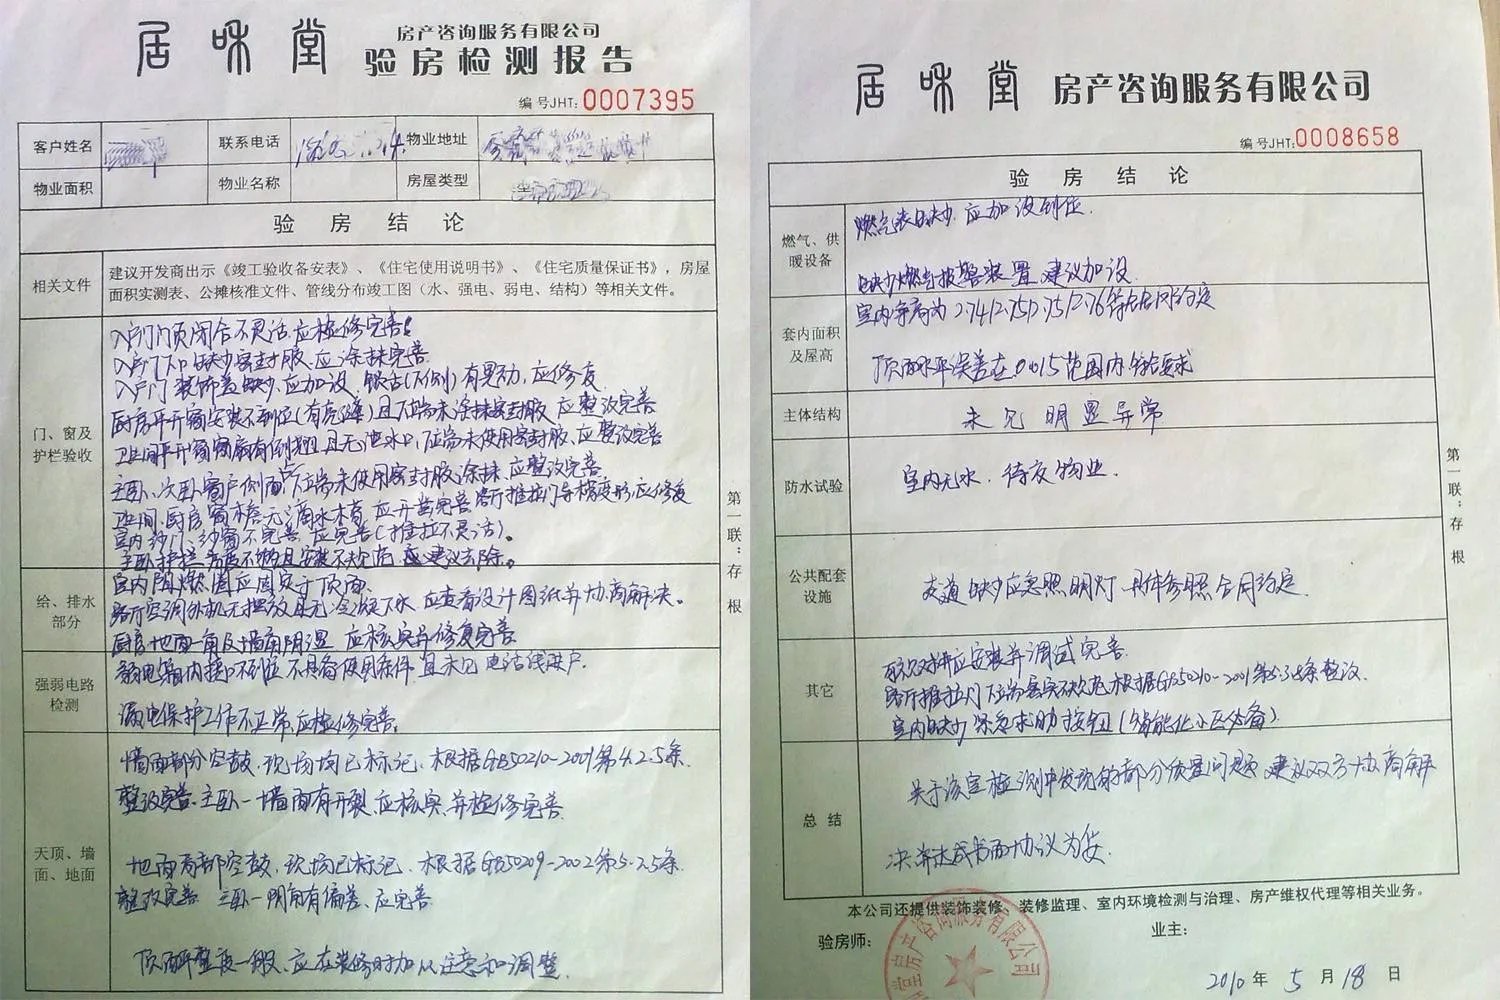 居和堂 房产咨询服务有限公司
验房检测报告
编号JHT: 0007395
客户姓名 联系电话 物业地址
物业面积 物业名称 房屋类型
验房结论
相关文件
建议开发商出示《竣工验收备安表》、《住宅使用说明书》、《住宅质量保证书》，房屋
面积实测表、公摊核准文件、管线分布竣工图（水、强电、弱电、结构）等相关文件。
门、窗及
护栏验收
入户门门页闭合不灵活,应检修完善。
入户门下口缺少密封胶,应涂抹完善
入户门装饰盖缺少,应加设,锁舌(下侧)有晃动,应修复
厨房平开窗安装不到位(有虎缝)且下端未涂抹密封胶,应整改完善
卫生间平开窗窗扇有倒翘且无泄水口,下端未使用密封胶,应整改完善
主卧、次卧窗户侧面下端未使用密封胶涂抹,应整改完善.
卫生间、厨房窗木槽无滴水槽,应开凿完善.客厅推拉门导槽变形,应修复
室内纱门、纱窗不完善,应完善(推拉不灵活)。
主卧护栏高度不够且安装不规范,建议去除。
给、排水
部分
室内阻燃圈应固定于顶面.
客厅空调外机无摆放且无冷凝下水,应查看设计图纸并协商解决。
厨房地面一角及墙角阴湿,应核实并修复完善
强弱电路
检测
弱电箱内接口不到位,不具备使用条件,且未见电话线联户.
漏电保护工作不正常,应检修完善.
天顶、墙
面、地面
墙面部分空鼓,现场均已标记,根据GB50210-2001第4.2.5条
整改完善.主卧一墙面有开裂,应核实,并检修完善
地面局部空鼓,现场已标记,根据GB50209-2002第5.2.5条
整改完善 主卧一阴角有偏差,应完善
顶面平整度一般,应在装修时加以注意和调整
第一联：存根
居和堂 房产咨询服务有限公司
编号JHT: 0008658
验房结论
燃气、供
暖设备
燃气表缺少,应加设到位.
缺少燃气报警装置,建议加设
套内面积
及屋高
室内净高为2.74/2.75/2.75/2.76符合合同约定
顶面水平误差在0.015范围内,符合要求
主体结构
未见明显异常
防水试验
室内无水.待交物业.
公共配套
设施
走道缺少应急照明灯.具体参照合同约定.
其它
联系对讲应安装并调试完善.
客厅推拉门下端塞实不规范,根据GB50210-2001第5.3.8条整改.
室内缺少紧急求助按钮(智能化小区必备)
总结
关于该室检测中发现的部分质量问题,建议双方协商解
决,并达成书面协议为妥.
本公司还提供装饰装修、装修监理、室内环境检测与治理、房产维权代理等相关业务。
验房师：
业主：
2010年5月18日
第一联：存根
房产咨询服务有限公司